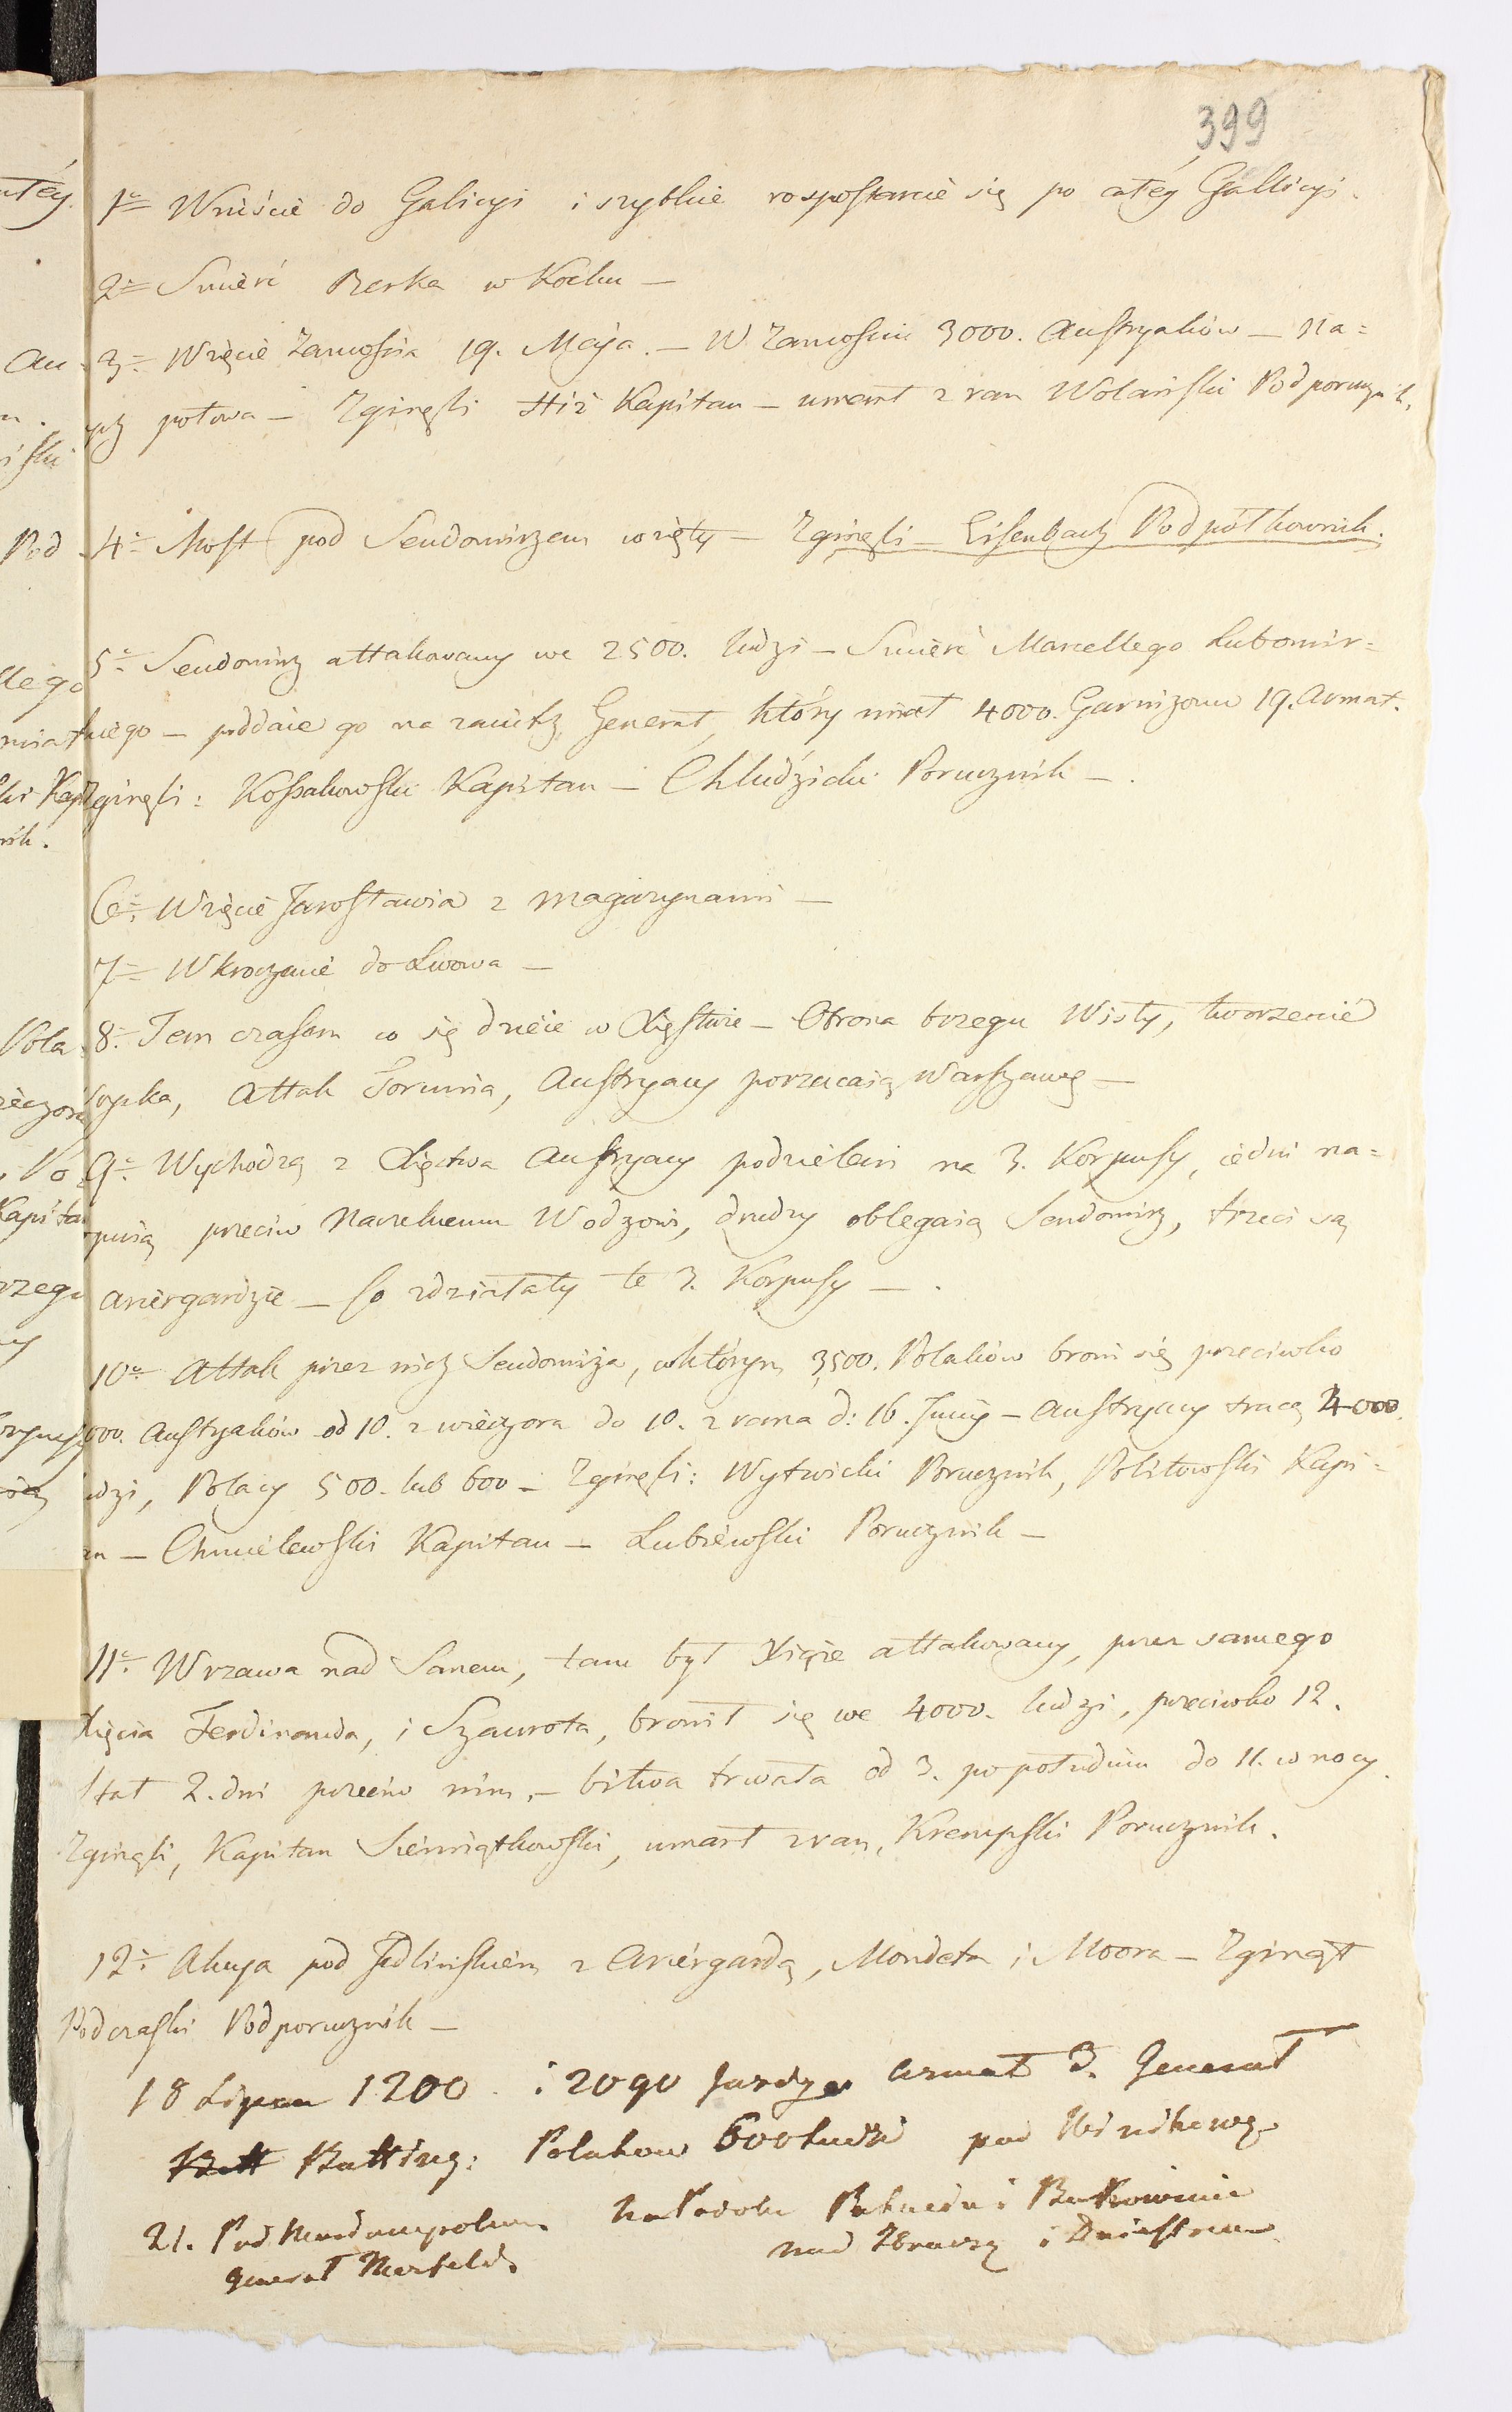 399
1o Wniście do Galicyi i szybkie rospostarcie się po całéy Gallicyi.
2o Smierć Berka w Kocku —
3o Wzięcie Zamościa 19. Maja. — W Zamościu 3000. Austryaków — Na=
szych połowa — Zginęli Hiż Kapitan — umarł z ran Wolański Podporucznik.
4o Most pod Sendomirzem wzięty — Zginęli — Eisenbach Podpółkownik.
5o Sendomirz attakowany we 2500. ludzi — Smierć Marcellego Lubomir=
skiego — poddaie go na zaiutrz, Generał, który miał 4000. Garnizonu 19. Armat.
Zginęli: Kossakowski Kapitan — Chludzicki Porucznik —.
6o Wzięcie Jarosławia z magazynami —
7o Wkroczenie do Lwowa —
8o Tem czasem co się dzieie w Xięstwie — Obrona brzegu Wisły, tworzenié
woyska, Attak Torunia, Austryacy porzucaią Warszawę —
9o Wychodzą z Xięstwa Austryacy podzieleni na 3. Korpusy, iedni na=
pieraią przeciw Naczelnemu Wodzowi, drudzy oblegaią Sendomirz, trzeci są
ariergardzie — Co zdziałały te 3. Korpusy —.
10o Attak przez nich Sendomirza, w którym 3,500. Polaków broni się przeciwko
000. Austryaków od 10. z wieczora do 10. z rana d: 16. Juny — Austryacy tracą 4000.
ludzi, Polacy 500. lub 600 — Zginęli: Wytwicki Porucznik, Politowski Kapi=
tan — Chmielewski Kapitan — Lubiéwski Porucznik —
11o Wrzawa nad Sanem, tam był Xiąże attakowany, przez samego
Xięcia Ferdinanda, i Szaurota, bronił się we 4000. ludzi, przeciwko 12.
Stał 2. dni przeciw nim, — bitwa trwała od 3. po południu do 11. w nocy.
Zginęli, Kapitan Siemiątkowski, umarł z ran, Krempski Porucznik.
12o Akcya pod Jedlińskiem z Ariérgardą, Mondeta i Moora — Zginął
Podczaski Podporucznik —
18 Lipca 1200 i 20go Jazdy Armat 3. Generał
Bulting: Polakow 600 ludzi pod
21. Pod Generał Merfeld. i Bukowinie
nad i Dniestrem